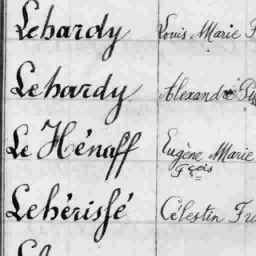 Lehardy Louis Marie
Lehardy Alexandre
Le Hénaff Eugène Marie
Fçois
Lehérissé Célestin